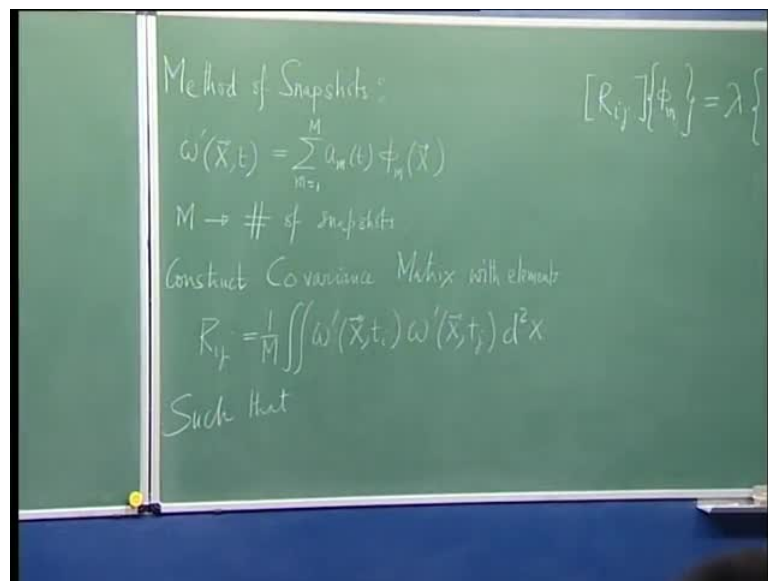 Method of Snapshots:
ω'(x⃗,t) = ∑_{m=1}^{M} a_m(t) ϕ_m(x⃗)
M → # of snapshots
Construct Covariance Matrix with elements
R_{ij} = 1/M ∬ ω'(x⃗,t_i) ω'(x⃗,t_j) d²x
Such that
[R_{ij}]{ϕ_m} = λ{